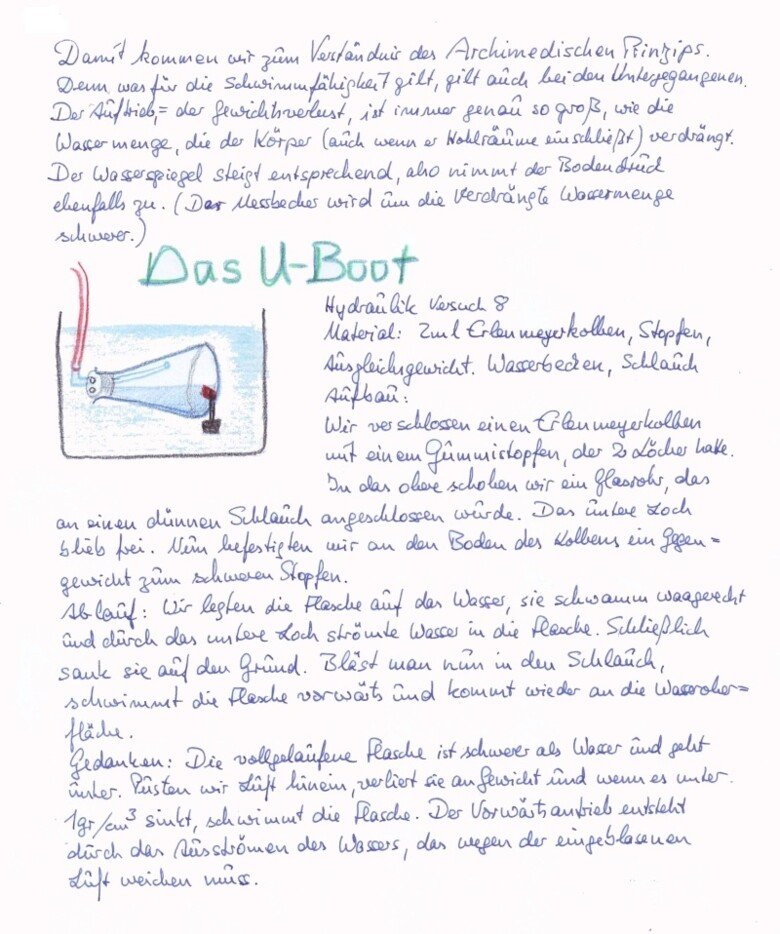 Damit kommen wir zum Verständnis des Archimedischen Prinzips.
Denn was für die Schwimmfähigkeit gilt, gilt auch bei den Untergegangenen.
Der Auftrieb, = der Gewichtsverlust, ist immer genau so groß, wie die
Wassermenge, die der Körper (auch wenn er Hohlräume einschließt) verdrängt.
Der Wasserspiegel steigt entsprechend, also nimmt der Bodendruck
ebenfalls zu. (Der Messbecher wird um die verdrängte Wassermenge
schwerer.)
Das U-Boot
Hydraulik Versuch 8
Material: 2ml Erlenmeyerkolben, Stopfen,
Ausgleichsgewicht. Wasserbecken, Schlauch
Aufbau:
Wir verschlossen einen Erlenmeyerkolben
mit einem Gummistopfen, der 2 Löcher hatte.
In das obere schoben wir ein Glasrohr, das
an einen dünnen Schlauch angeschlossen wurde. Das untere Loch
blieb frei. Nun befestigten wir an den Boden des Kolbens ein Gegen=
gewicht zum schweren Stopfen.
Ablauf: Wir legten die Flasche auf das Wasser, sie schwamm waagerecht
und durch das untere Loch strömte Wasser in die Flasche. Schließlich
sank sie auf den Grund. Bläst man nun in den Schlauch,
schwimmt die Flasche vorwärts und kommt wieder an die Wasserober=
fläche.
Gedanken: Die vollgelaufene Flasche ist schwerer als Wasser und geht
unter. Pusten wir Luft hinein, verliert sie an Gewicht und wenn es unter
1gr/cm³ sinkt, schwimmt die Flasche. Der Vorwärtsantrieb entsteht
durch das Ausströmen des Wassers, das wegen der eingeblasenen
Luft weichen muss.